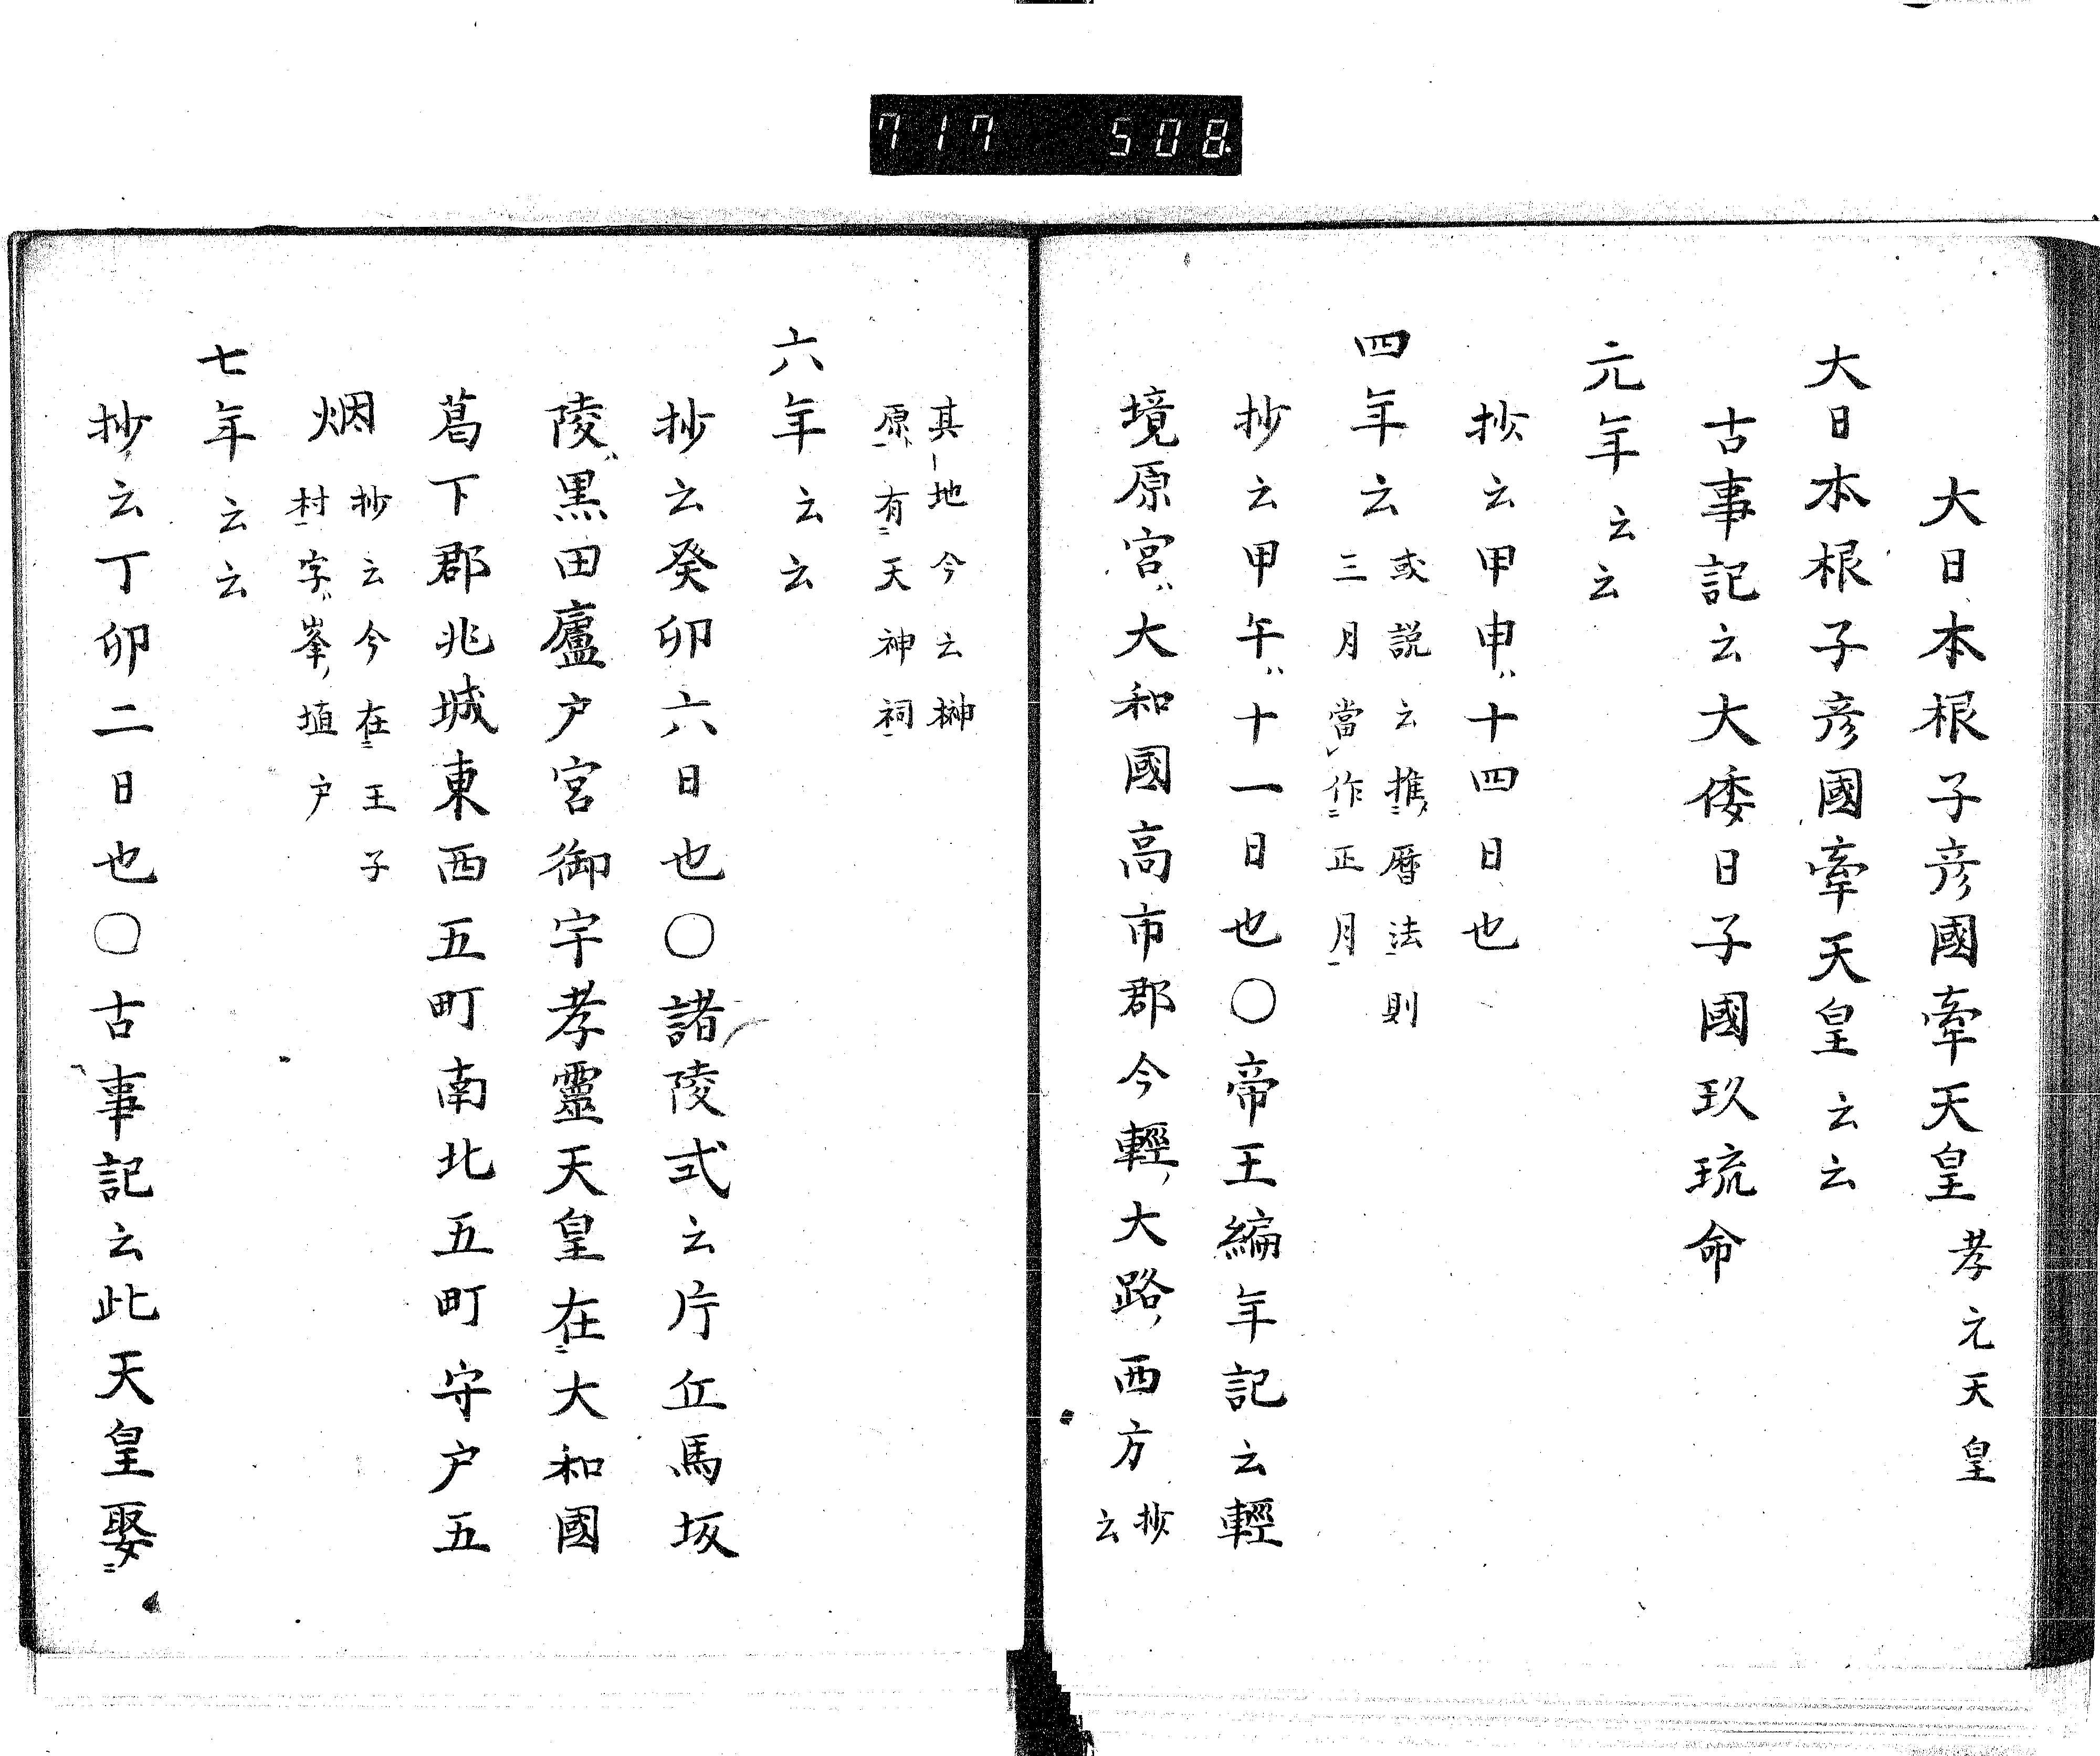 717 508.
大日本根子彦國牽天皇 孝元天皇
大日本根子彦國牽天皇云云
古事記云大倭日子國玖琉命
元年云云
抄云甲申十四日也
四年云 或説云推暦法則
三月當作正月
抄云甲午十一日也〇帝王編年記云輕
境原宮大和國高市郡今輕大路西方 抄
云
其地今云榊
原有天神祠
六年云云
抄云癸卯六日也〇諸陵式云片丘馬坂
陵黒田廬戸宮御宇孝靈天皇在大和國
葛下郡兆城東西五町南北五町守戸五
烟 抄云今在王子
村字峯埴戸
七年云云
抄云丁卯二日也〇古事記云此天皇娶